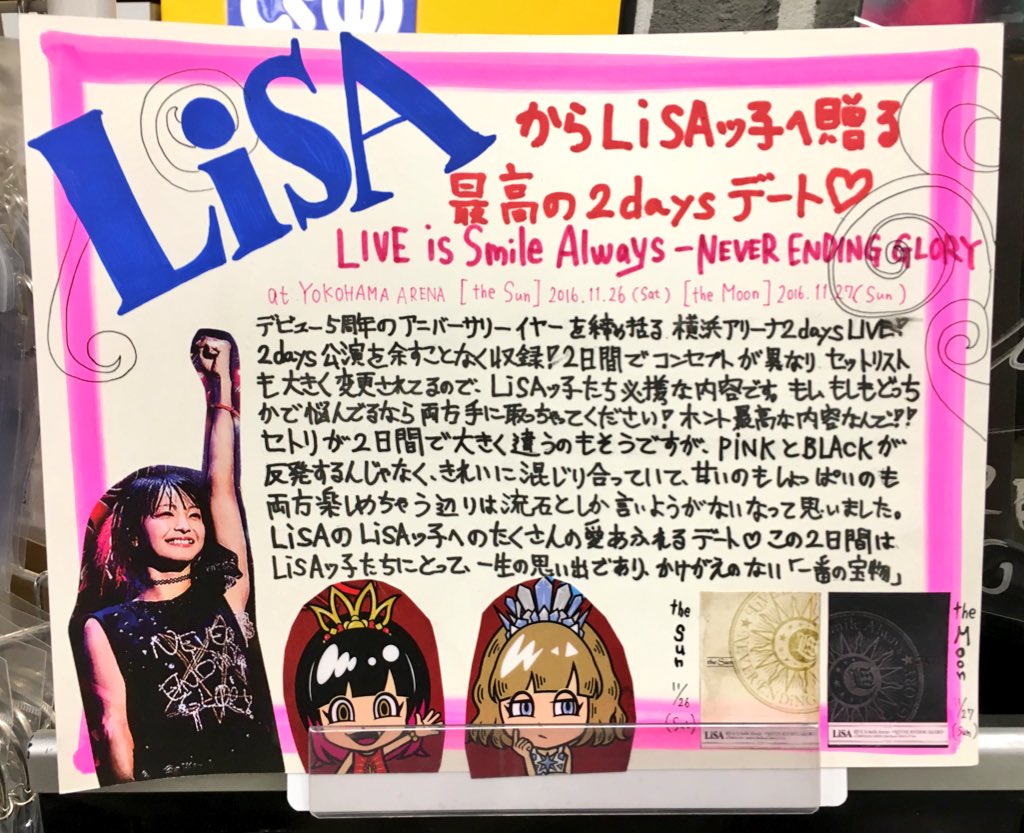 LiSA
からLiSAッ子へ贈る
最高の2days デート♡
LIVE is Smile Always -NEVER ENDING GLORY
at YOKOHAMA ARENA [the Sun] 2016.11.26 (Sat) [the Moon] 2016.11.27 (Sun)
デビュー5周年のアニバーサリーイヤーを締め括る 横浜アリーナ2days LIVE!
2days 公演を余すことなく収録!2日間でコンセプトが異なり、セットリスト
も大きく変更されてるので、LiSAッ子たち必携な内容です。もし、もしもどっち
かで悩んでるなら両方手に取っちゃてください!ホント最高な内容なんで!!
セトリが2日間で大きく違うのもそうですが、PiNKとBLACKが
反発するんじゃなく、きれいに混じり合っていて、甘いのもしょっぱいのも
両方楽しめちゃう辺りは流石としか言いようがないなって思いました。
LiSAのLiSAッ子へのたくさんの愛あふれるデート♡この2日間は
LiSAッ子たちにとって、一生の思い出であり、かけがえのない「一番の宝物」
the Sun 11/26 (Sat)
the Sun
LiSA
LiSA
the Moon 11/27 (Sun)
NEVER